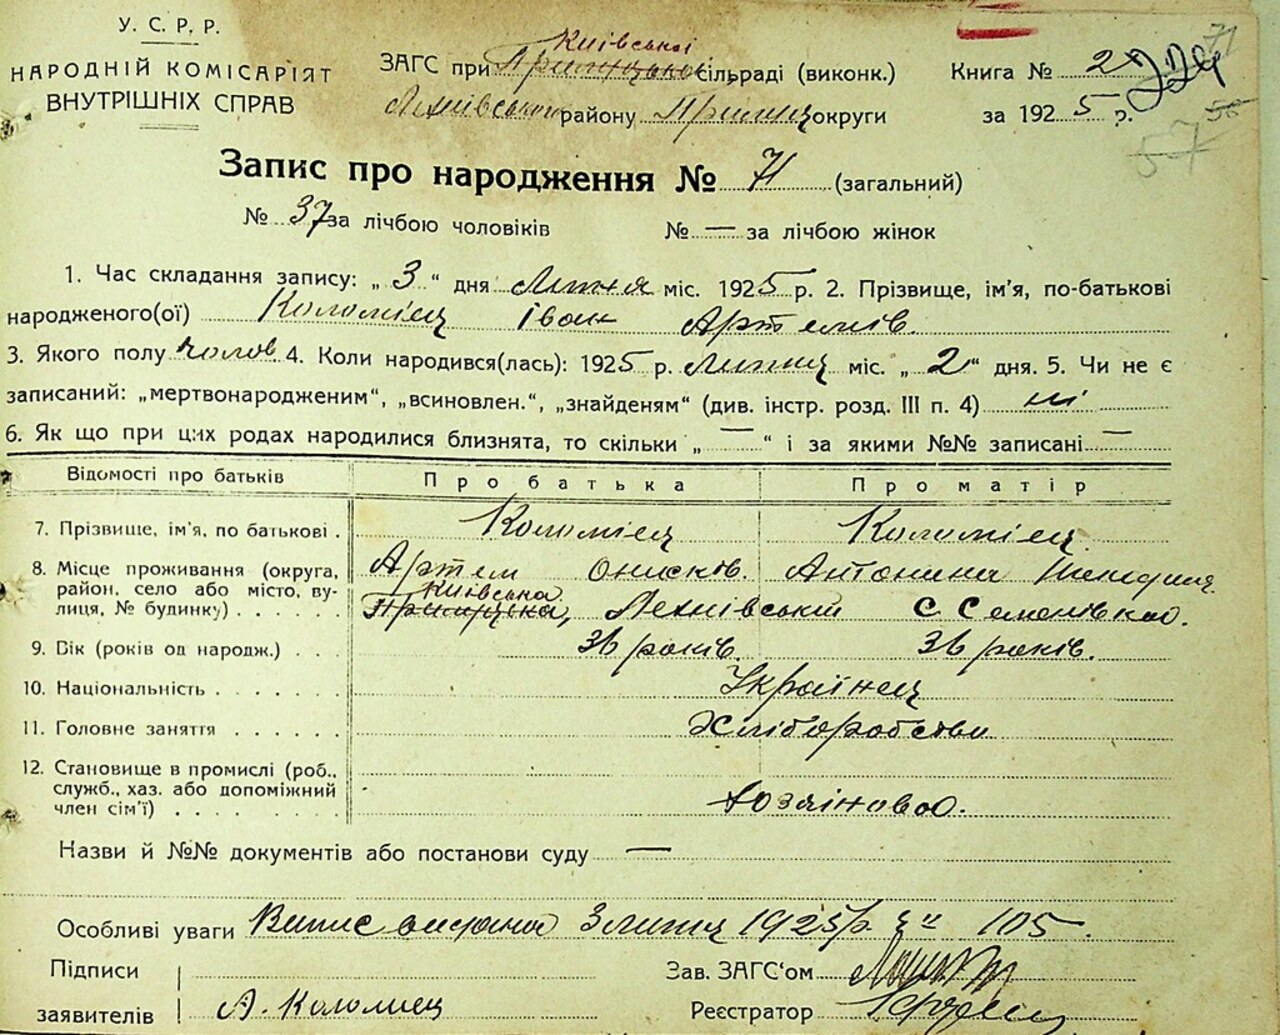 У. С. Р. Р.
НАРОДНІЙ КОМІСАРІЯТ
ВНУТРІШНІХ СПРАВ
Київської
ЗАГС при Прилуцької сільраді (виконк.)
району Прилуц округи
Книга №
за 1925 р.
71
Запис про народження № 71 (загальний)
№ 37 за лічбою чоловіків № — за лічбою жінок
1. Час складання запису: „ 3 “ дня Липня міс. 1925 р. 2. Прізвище, ім'я, по-батькові
народженого(ої) Коломієц Іван Артемів.
3. Якого полу чолов 4. Коли народився(лась): 1925 р. Липня міс. „ 2 “ дня. 5. Чи не є
записаний: „мертвонародженим“, „всиновлен.“, „знайденям“ (див. інстр. розд. III п. 4) ні
6. Як що при цих родах народилися близнята, то скільки „ — “ і за якими №№ записані —
Відомості про батьків Про батька Про матір
7. Прізвище, ім'я, по батькові . Коломієц Коломієц
Артем Онисків. Антонина
8. Місце проживання (округа, район, село або місто, вулиця, № будинку) . . . . . Київська Прилуцька, с. Семенівка
9. Вік (років од народж.) . . . 36 років. 36 років.
10. Національність . . . . . . . Українец
11. Головне заняття . . . . . . Хліборобство
12. Становище в промислі (роб., служб., хаз. або допоміжний член сім'ї) . . . . . . . .
Назви й №№ документів або постанови суду —
Особливі уваги Випис видана 3 липня 1925 р. 105.
Підписи
заявителів А. Коломиец
Зав. ЗАГС'ом
Реєстратор